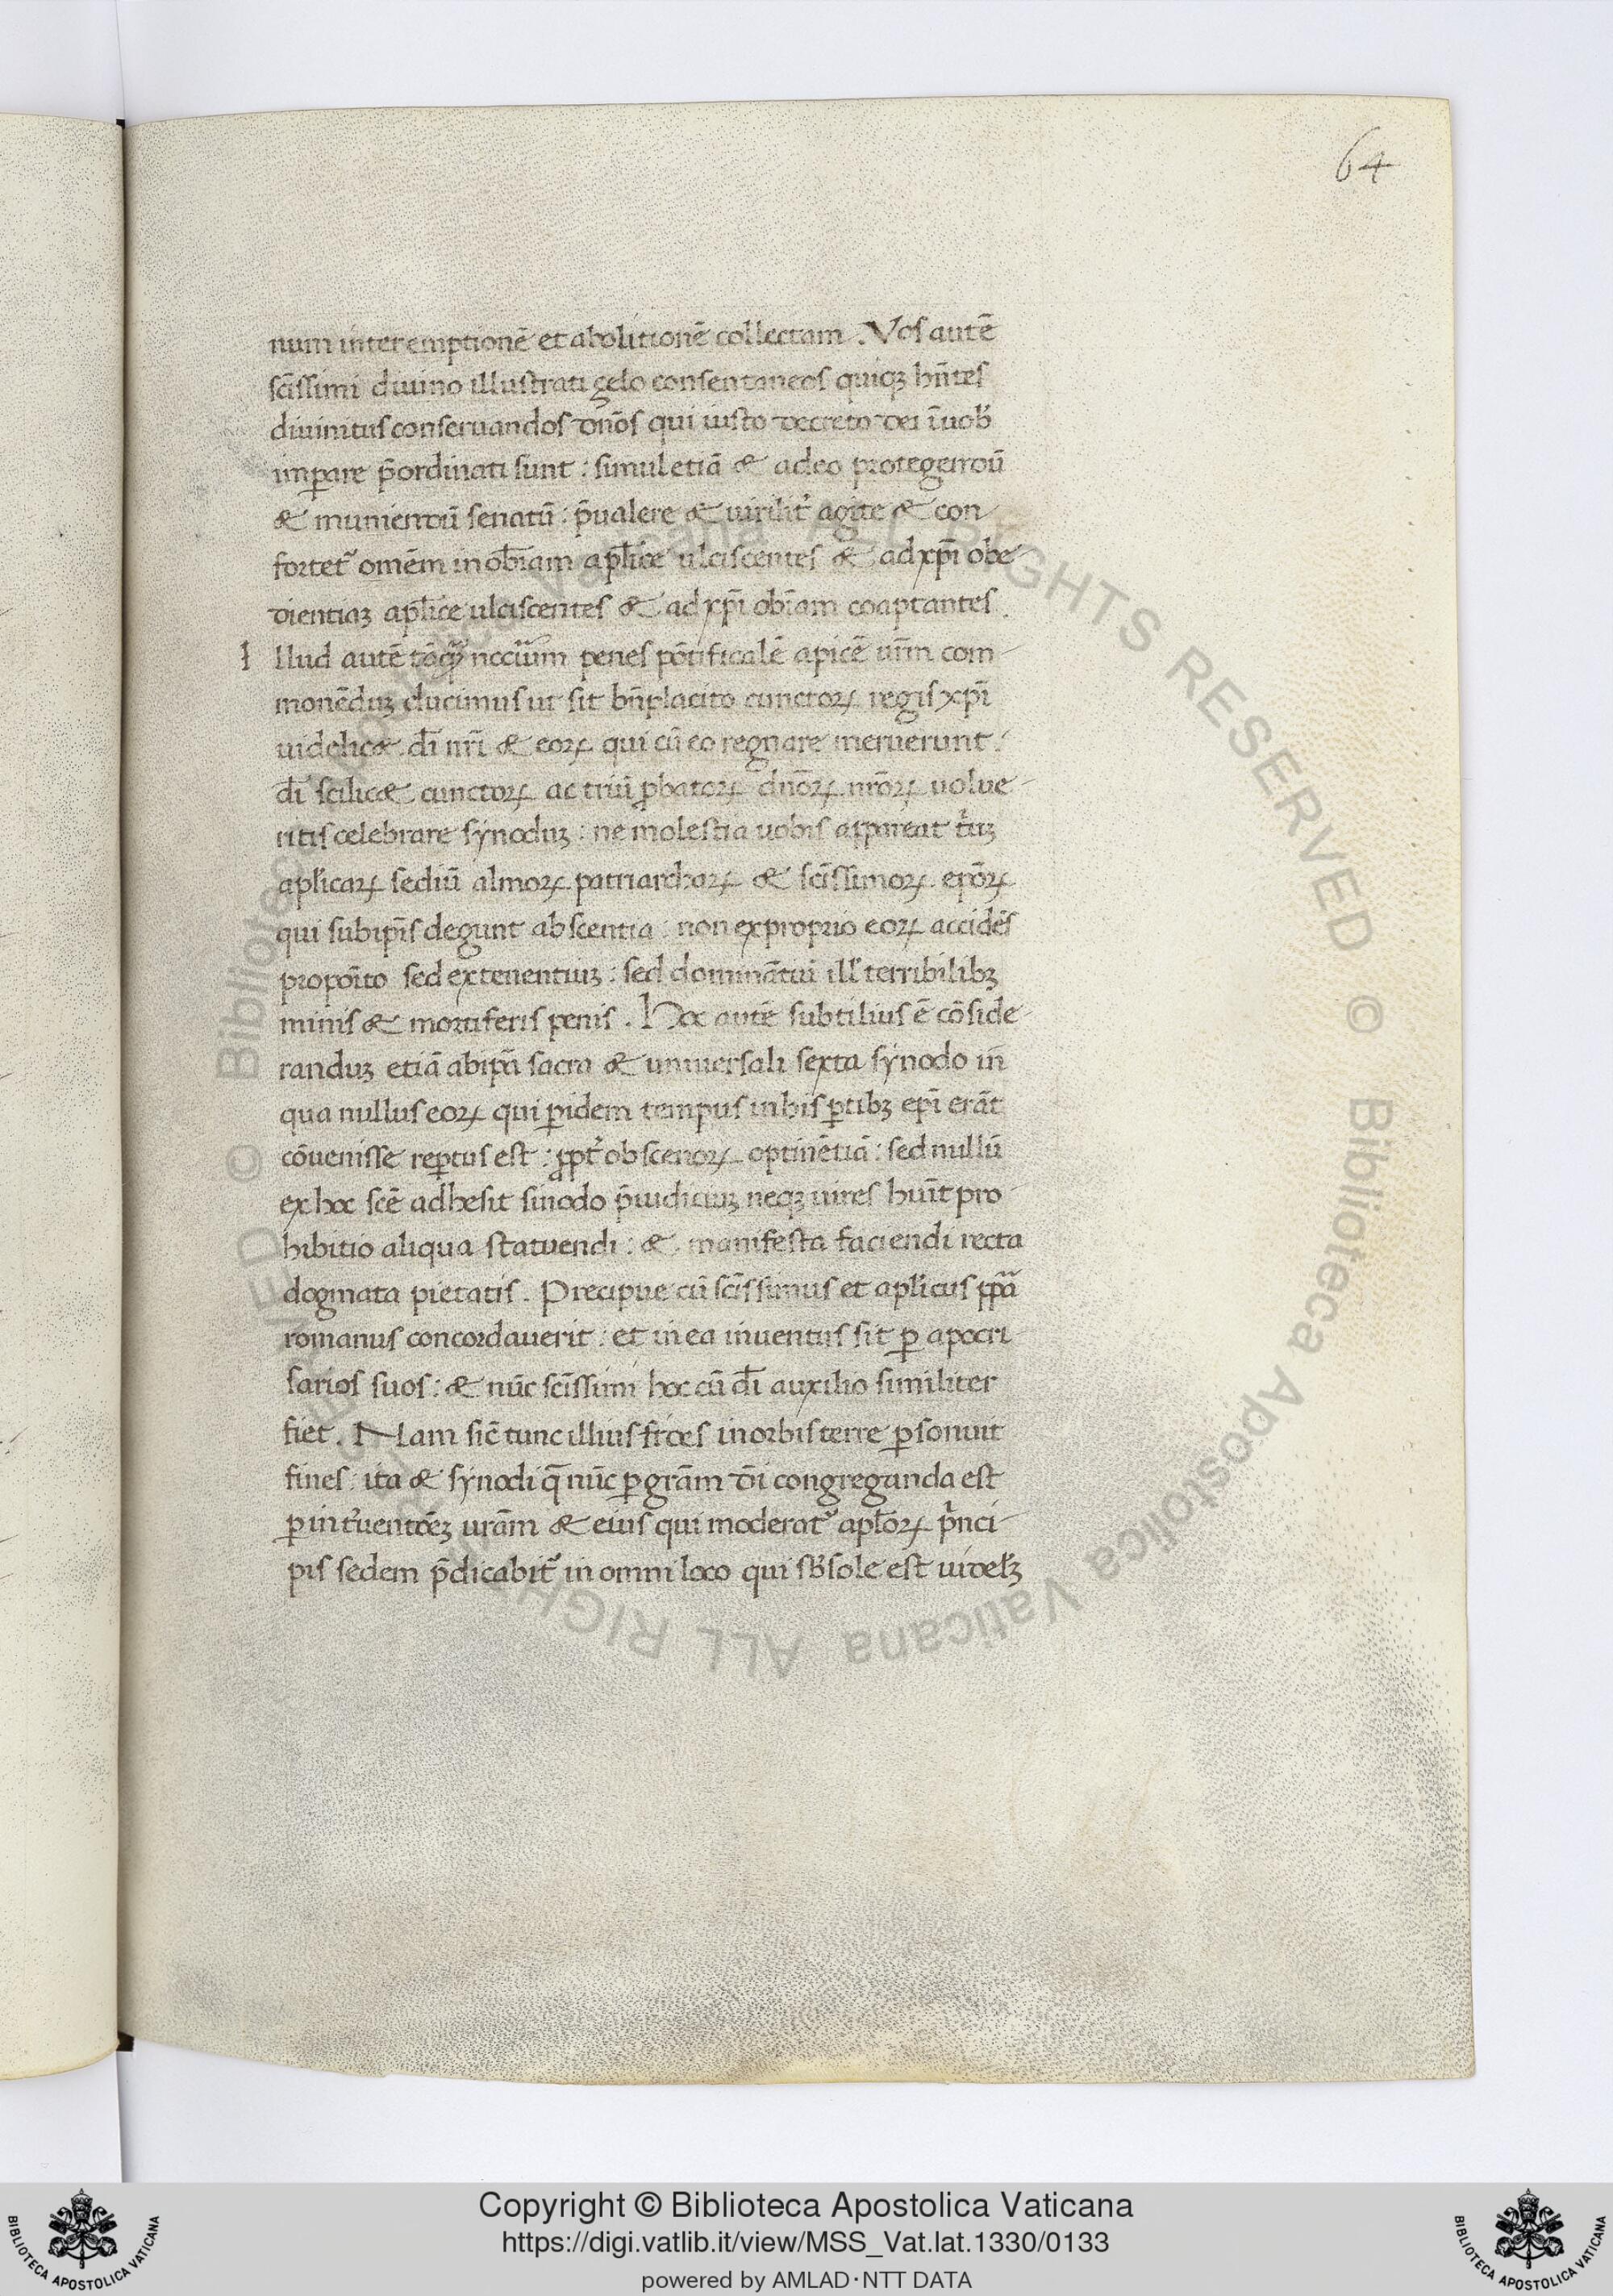 64
num interemptionē et abolitionē collectam . Vos autē
scīssimi divino illustrati zelo consentaneos quiqꝫ hn̄tes
divinitus conservandos dn̄os qui iusto decreto dei ī uob̄
imꝑare p̄ordinati sunt : simul etiā & a deo protegendū
& muniendū senatū : p̄ualere & uirilit᷑ agite & con
fortet᷑ omēm inob̄iam apl̄ice ulciscentes & ad xp̄i obe
dientiaꝫ apl̄ice ulciscentes & ad xp̄i ob̄iam coaptantes .
I llud autē penes pōtificalē apicē ur̄m com
monēduꝫ ducimus ut sit bn̄placito cunctoꝝ regis xp̄i
uidelic& . dī nr̄i & eoꝝ qui cū eo regnare meruerunt .
dī scilic& cunctoꝝ ac triū ꝓbatoꝝ dn̄oꝝ nr̄oꝝ uolue
ritis celebrare synoduꝫ : ne molestia uobis appareat
apl̄icaꝝ sediū almoꝝ patriarchaꝝ & scīssimoꝝ . ep̄oꝝ
qui sub ip̄is degunt abscentia : non ex proprio eoꝝ accidēs
propoīto sed ex tenentiuꝫ : sed dominātiū ill̄ terribilibꝫ
minis & mortiferis penis . Hoc autē subtilius ē cōside
randuꝫ etiā ab ip̄a sacra & universali sexta synodo in
qua nullus eoꝝ qui ꝑ idem tempus in his ꝑtibꝫ ep̄i erāt
cōuenisse reꝑtus est : ꝓpt᷑ obscenoꝝ optinētiā : sed nullū
ex hoc scē adhesit sinodo p̄iudiciuꝫ neqꝫ uires hūit pro
hibitio aliqua statuendi : & manifesta faciendi recta
dogmata pietatis . Precipue cū scīssimus et apl̄icus pp̄a
romanus concordauerit : et in ea inuentus sit ꝑ apocri
sarios suos : & nūc scīssimi hoc cū dī auxilio similiter
fiet . Nam sic̄ tunc illius fides in orbis terre ꝑsonuit
fines : ita & synodi q̄ nūc ꝑ grām dī congreganda est
ꝑ int᷑uentōeꝫ urām & eius qui moderat᷑ apl̄oꝝ p̄nci
pis sedem p̄dicabit᷑ in omni loco qui sb̄ sole est
Copyright © Biblioteca Apostolica Vaticana
https://digi.vatlib.it/view/MSS_Vat.lat.1330/0133
powered by AMLAD·NTT DATA